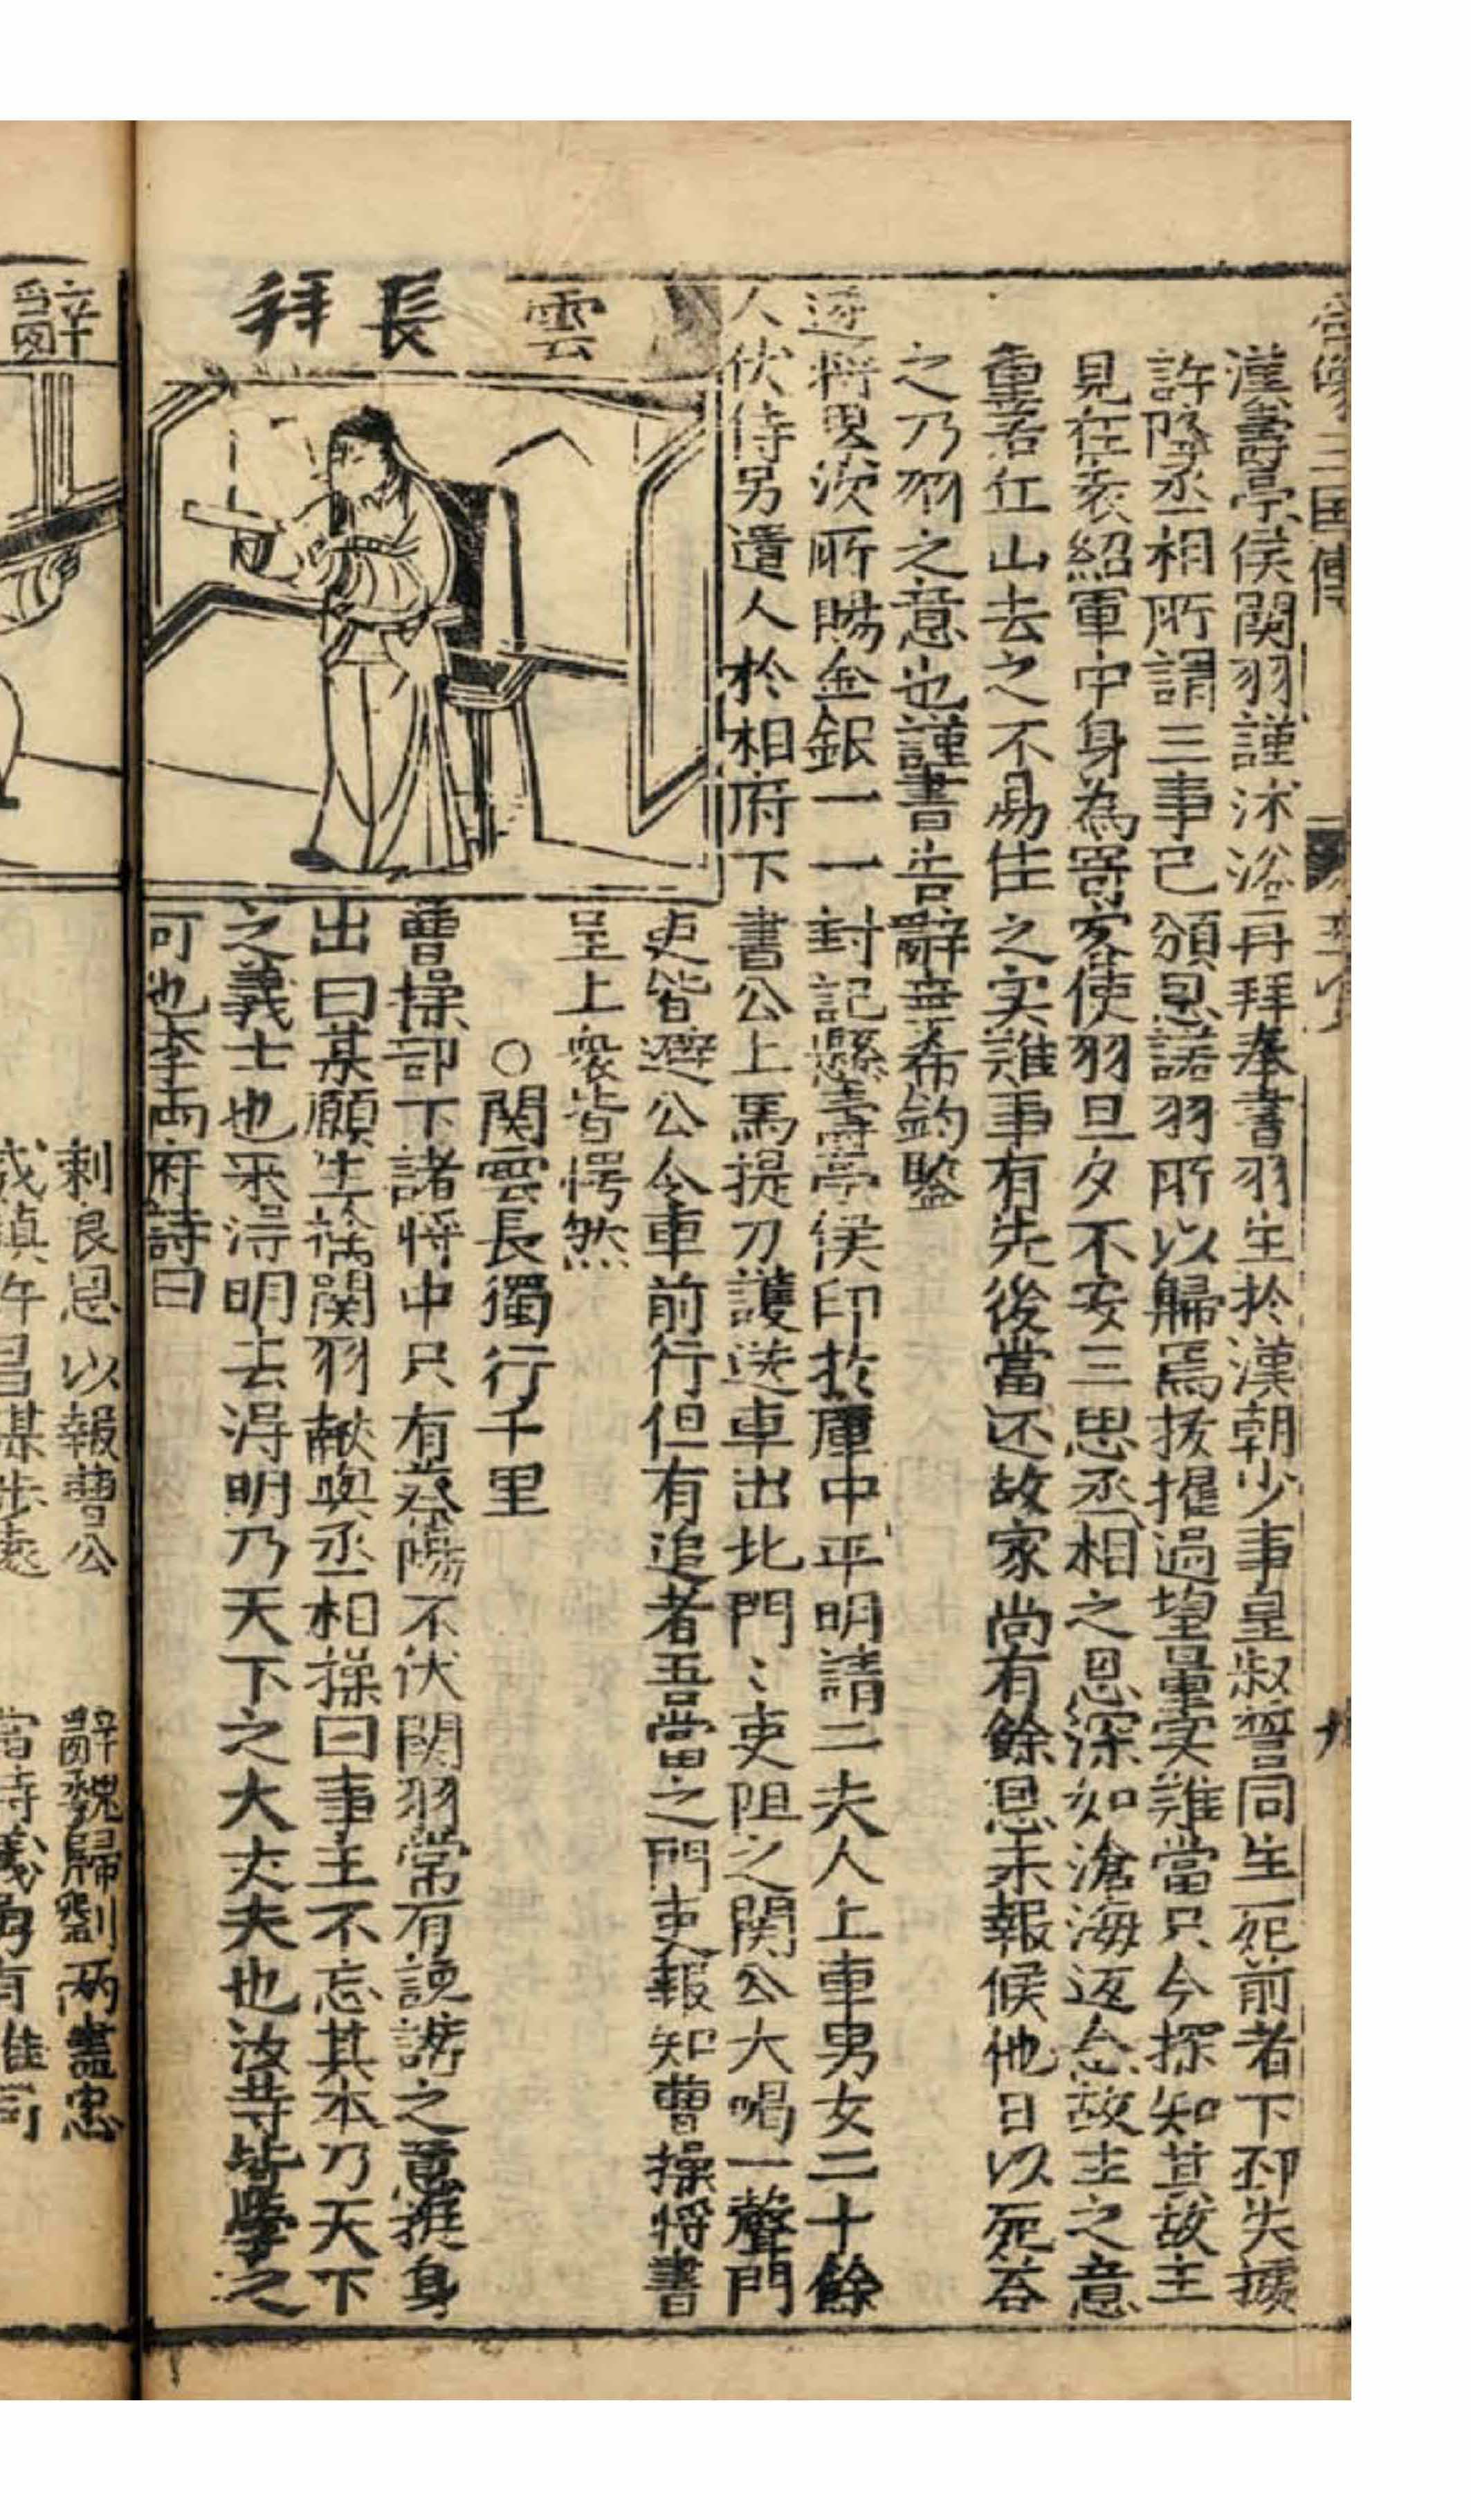 三国傳
漢壽亭侯関羽謹沐浴再拜奉書羽生於漢朝少事皇叔誓同生死前者下邳失據
許陞丞相所謂三事已頒恩諾羽所以歸焉拔擢過望量实難當只今探知其故主
見在袁紹軍中身為寄客使羽旦夕不安三思丞相之恩深如滄海返念故主之意
重若丘山去之不易住之实难事有先後當还故家尚有餘恩未報候他日以死荅
之乃羽之意也謹書告辭垂希鈞鑒
逐将累次所賜金銀一一封記懸壽亭侯印於庫中平明請二夫人上車男女二十餘
人伏侍另遣人於相府下書公上馬提刀護送車出北門〻吏阻之関公大喝一聲門
吏皆避公令車前行但有追者吾當之門吏報知曹操将書
呈上衆皆愕然
○関雲長獨行千里
曹操部下諸将中只有蔡陽不伏関羽常有謗之意挺身
出曰某願生擒関羽献與丞相操曰事主不忘其本乃天下
之義士也来得明去得明乃天下之大丈夫也汝等皆學之
可也李雨府詩曰
雲長拜
辭
刺良恩以報曹公
辭魏歸劉兩盡忠